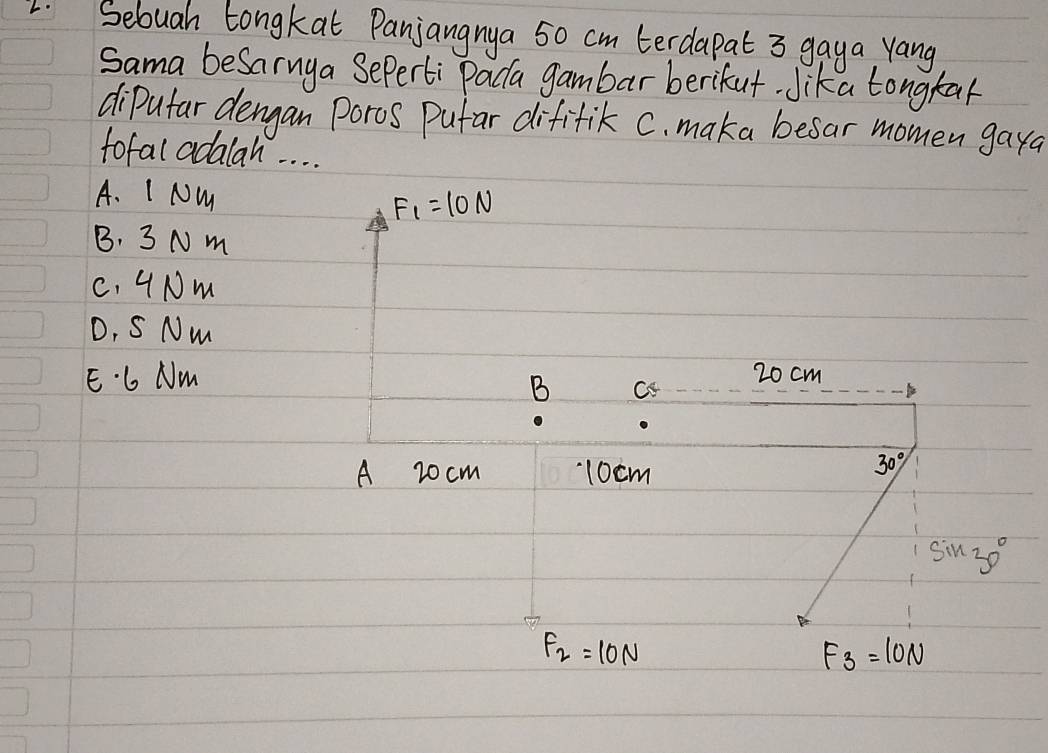 2. Sebuah tongkat Panjangnya 50 cm terdapat 3 gaya yang
Sama besarnya Seperti pada gambar berikut. Jika tongkat
diputar dengan Poros Putar dititik C. maka besar momen gaya
total adalah ....
A. 1 Nm
F1 = 10 N
B. 3 N m
C. 4 Nm
D. 5 Nm
E. 6 Nm
B C 20 cm
A 20 cm 10 cm 30°
Sin 30°
F2 = 10N F3 = 10N